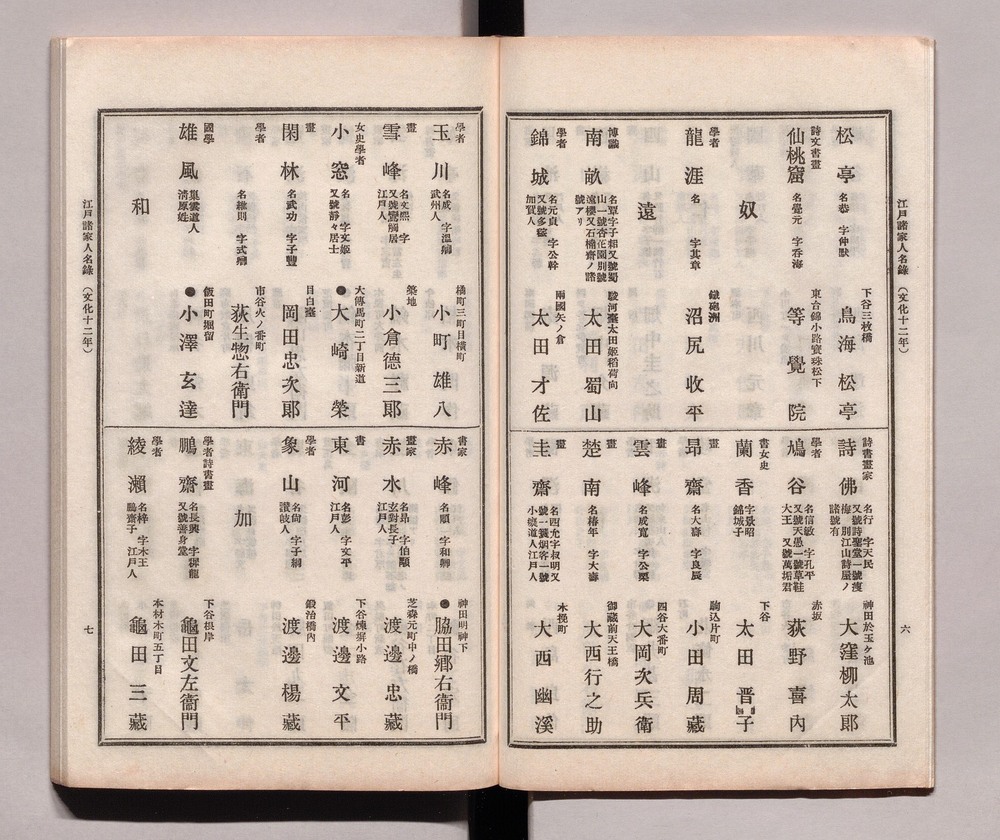 江戸諸家人名錄（文化十二年）
六
松亭 名恭 字仲默 下谷三枚橋 鳥海松亭
詩文書畫
仙桃窟 名覺元 字吞海 東台錦小路寶珠松下 等覺院
奴
學者
龍涯 名 字其章 鐵砲洲 沼尻收平
遠
博識
南畝 名覃字子耜又號蜀山一號杏花園別號遠櫻又石楠齋ノ諸號アリ 駿河臺太田姬稻荷向 太田蜀山
學者
錦城 名元貞 字公幹 又號多稼 加賀人 兩國矢ノ倉 太田才佐
詩書畫家
詩佛 名行 字天民 又號詩聖堂一號瘦梅 別江山詩屋ノ諸號有 神田於玉ヶ池 大窪柳太郎
學者
鳩谷 名信敏 字孔平 又號天愚一號草鞋大王 又號萬垢君 赤坂 荻野喜內
書女史
蘭香 字景昭 錦城子 下谷 太田晋子
畫
昂齋 名大壽 字良辰 駒込片町 小田周藏
畫
雲峰 名成寬 字公栗 四谷大番町 大岡次兵衛
畫
楚南 名椿年 字大壽 御藏前天王橋 大西行之助
畫
圭齋 名四允字叔明又號一簑烟客一號小痴道人江戸人 木挽町 大西幽溪
江戸諸家人名錄（文化十二年）
七
學者
玉川 名成 字溫卿 武州人 橘町三町目橫町 小町雄八
畫
雪峰 名文熙 字 又號鸞觴居 江戸人 築地 小倉德三郎
女史學者
小窓 名 字文姬 又號靜々居士 大傳馬町二丁目新道 ●大崎榮
畫
閑林 名武功 字子豐 目白臺 岡田忠次郎
學者
名維則 字式卿 市谷火ノ番町 荻生惣右衛門
國學
雄風 巢雲道人 清原姓 飯田町堀留 ●小澤玄達
和
書家
赤峰 名順 字和卿 神田明神下 ●脇田鄉右衛門
畫家
赤水 名昂 字伯顒 玄對長子 江戸人 芝森元町中ノ橋 渡邊忠藏
書
東河 名彭 字文平 江戸人 下谷練塀小路 渡邊文平
學者
象山 名尙 字子綱 讃岐人 鍛治橋內 渡邊楊藏
加
學者詩書畫
鵬齋 名長興 字穉龍 又號善身堂 下谷根岸 龜田文左衞門
學者
綾瀨 名梓 字木王 鵬齋子 江戸人 本材木町五丁目 龜田三藏